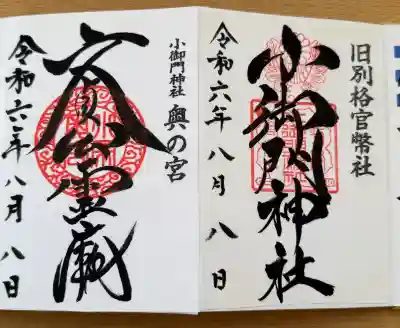 旧別格官幣社
小御門神社
令和六年八月八日
小御門神社
奥の宮
文貞公霊
令和六年八月八日